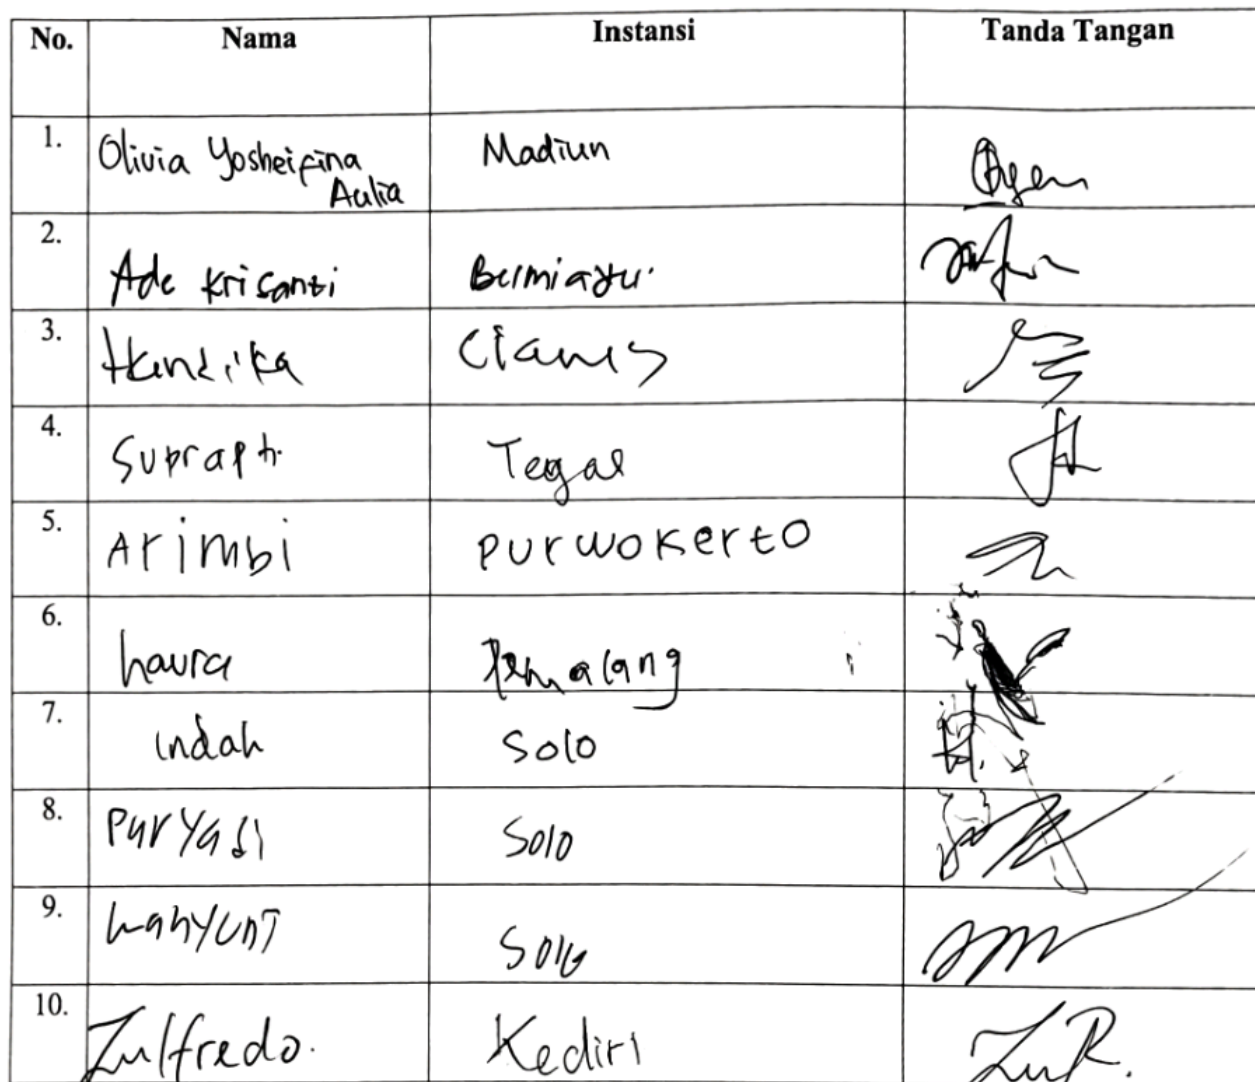 No. Nama Instansi Tanda Tangan
1. Olivia Yosheifina Madiun
Aulia
2. Ade Krisanti Bumiayu.
3. Hendrika Ciamis
4. Suprapti Tegal
5. Arimbi Purwokerto
6. haura Pemalang
7. indah Solo
8. Puryadi Solo
9. wahyuni Solo
10. Zulfredo. Kediri